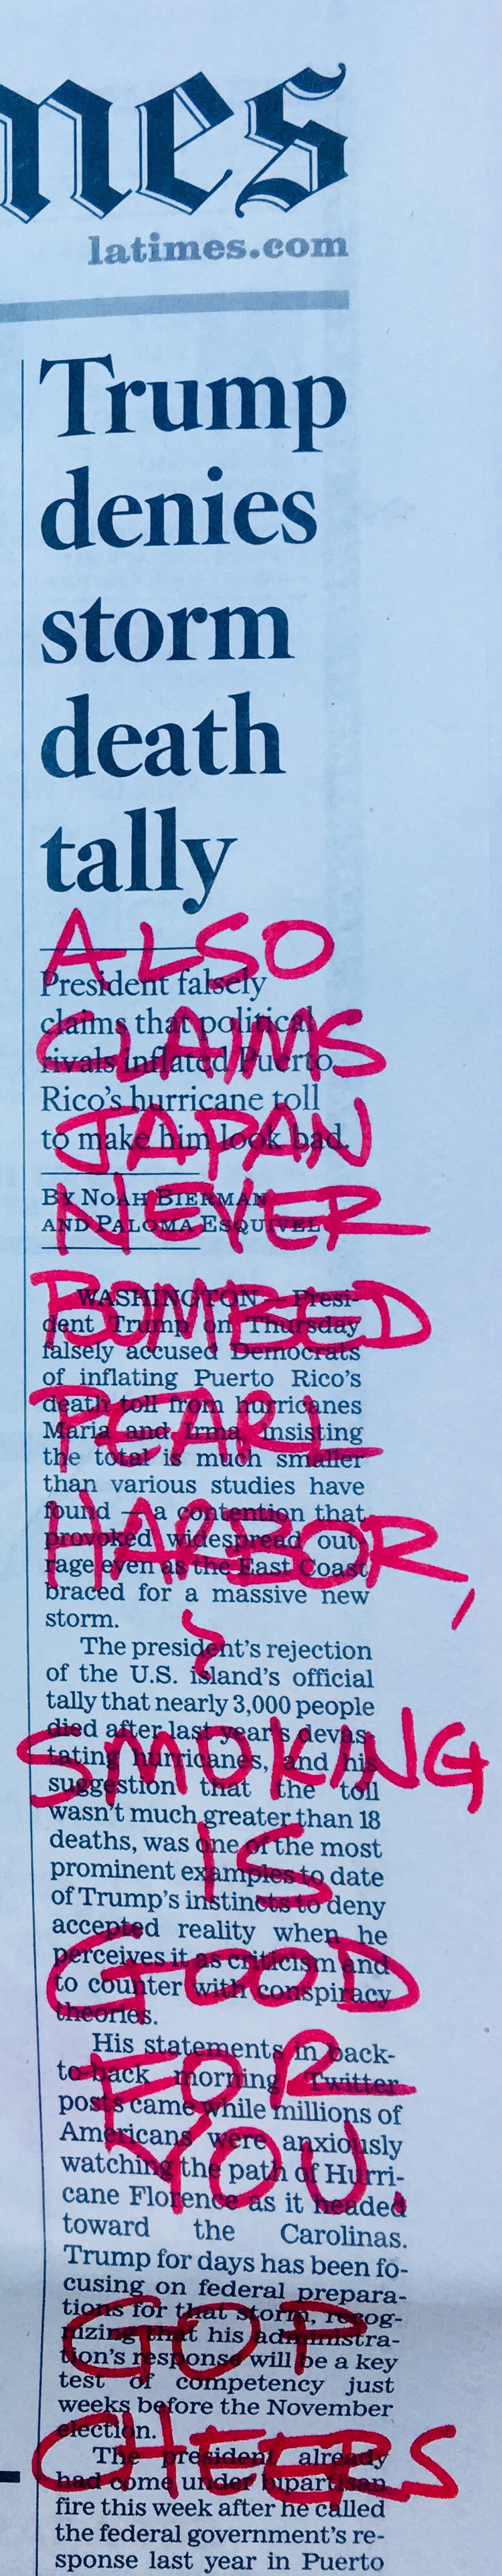 mes
latimes.com
Trump
denies
storm
death
tally
ALSO
President falsely
claims that political
CLAIMS
rivals inflated Puerto
Rico's hurricane toll
JAPAN
to make him look bad.
NEVER
BY NOAH BIERMAN
AND PALOMA ESQUIVEL
BOMBED
WASHINGTON — Presi-
dent Trump on Thursday
falsely accused Democrats
of inflating Puerto Rico's
death toll from hurricanes
PEARL
Maria and Irma, insisting
the total is much smaller
than various studies have
found — a contention that
HARBOR,
provoked widespread out-
rage even as the East Coast
braced for a massive new
storm.
The president's rejection
of the U.S. island's official
tally that nearly 3,000 people
died after last year's devas-
SMOKING
tating hurricanes, and his
suggestion that the toll
wasn't much greater than 18
deaths, was one of the most
IS
prominent examples to date
of Trump's instincts to deny
accepted reality when he
perceives it as criticism and
GOOD
to counter with conspiracy
theories.
His statements in back-
to-back morning Twitter
FOR
posts came while millions of
Americans were anxiously
YOU.
watching the path of Hurri-
cane Florence as it headed
toward the Carolinas.
Trump for days has been fo-
cusing on federal prepara-
tions for that storm, recog-
GOP
nizing that his administra-
tion's response will be a key
test of competency just
weeks before the November
election.
CHEERS
The president already
had come under bipartisan
fire this week after he called
the federal government's re-
sponse last year in Puerto